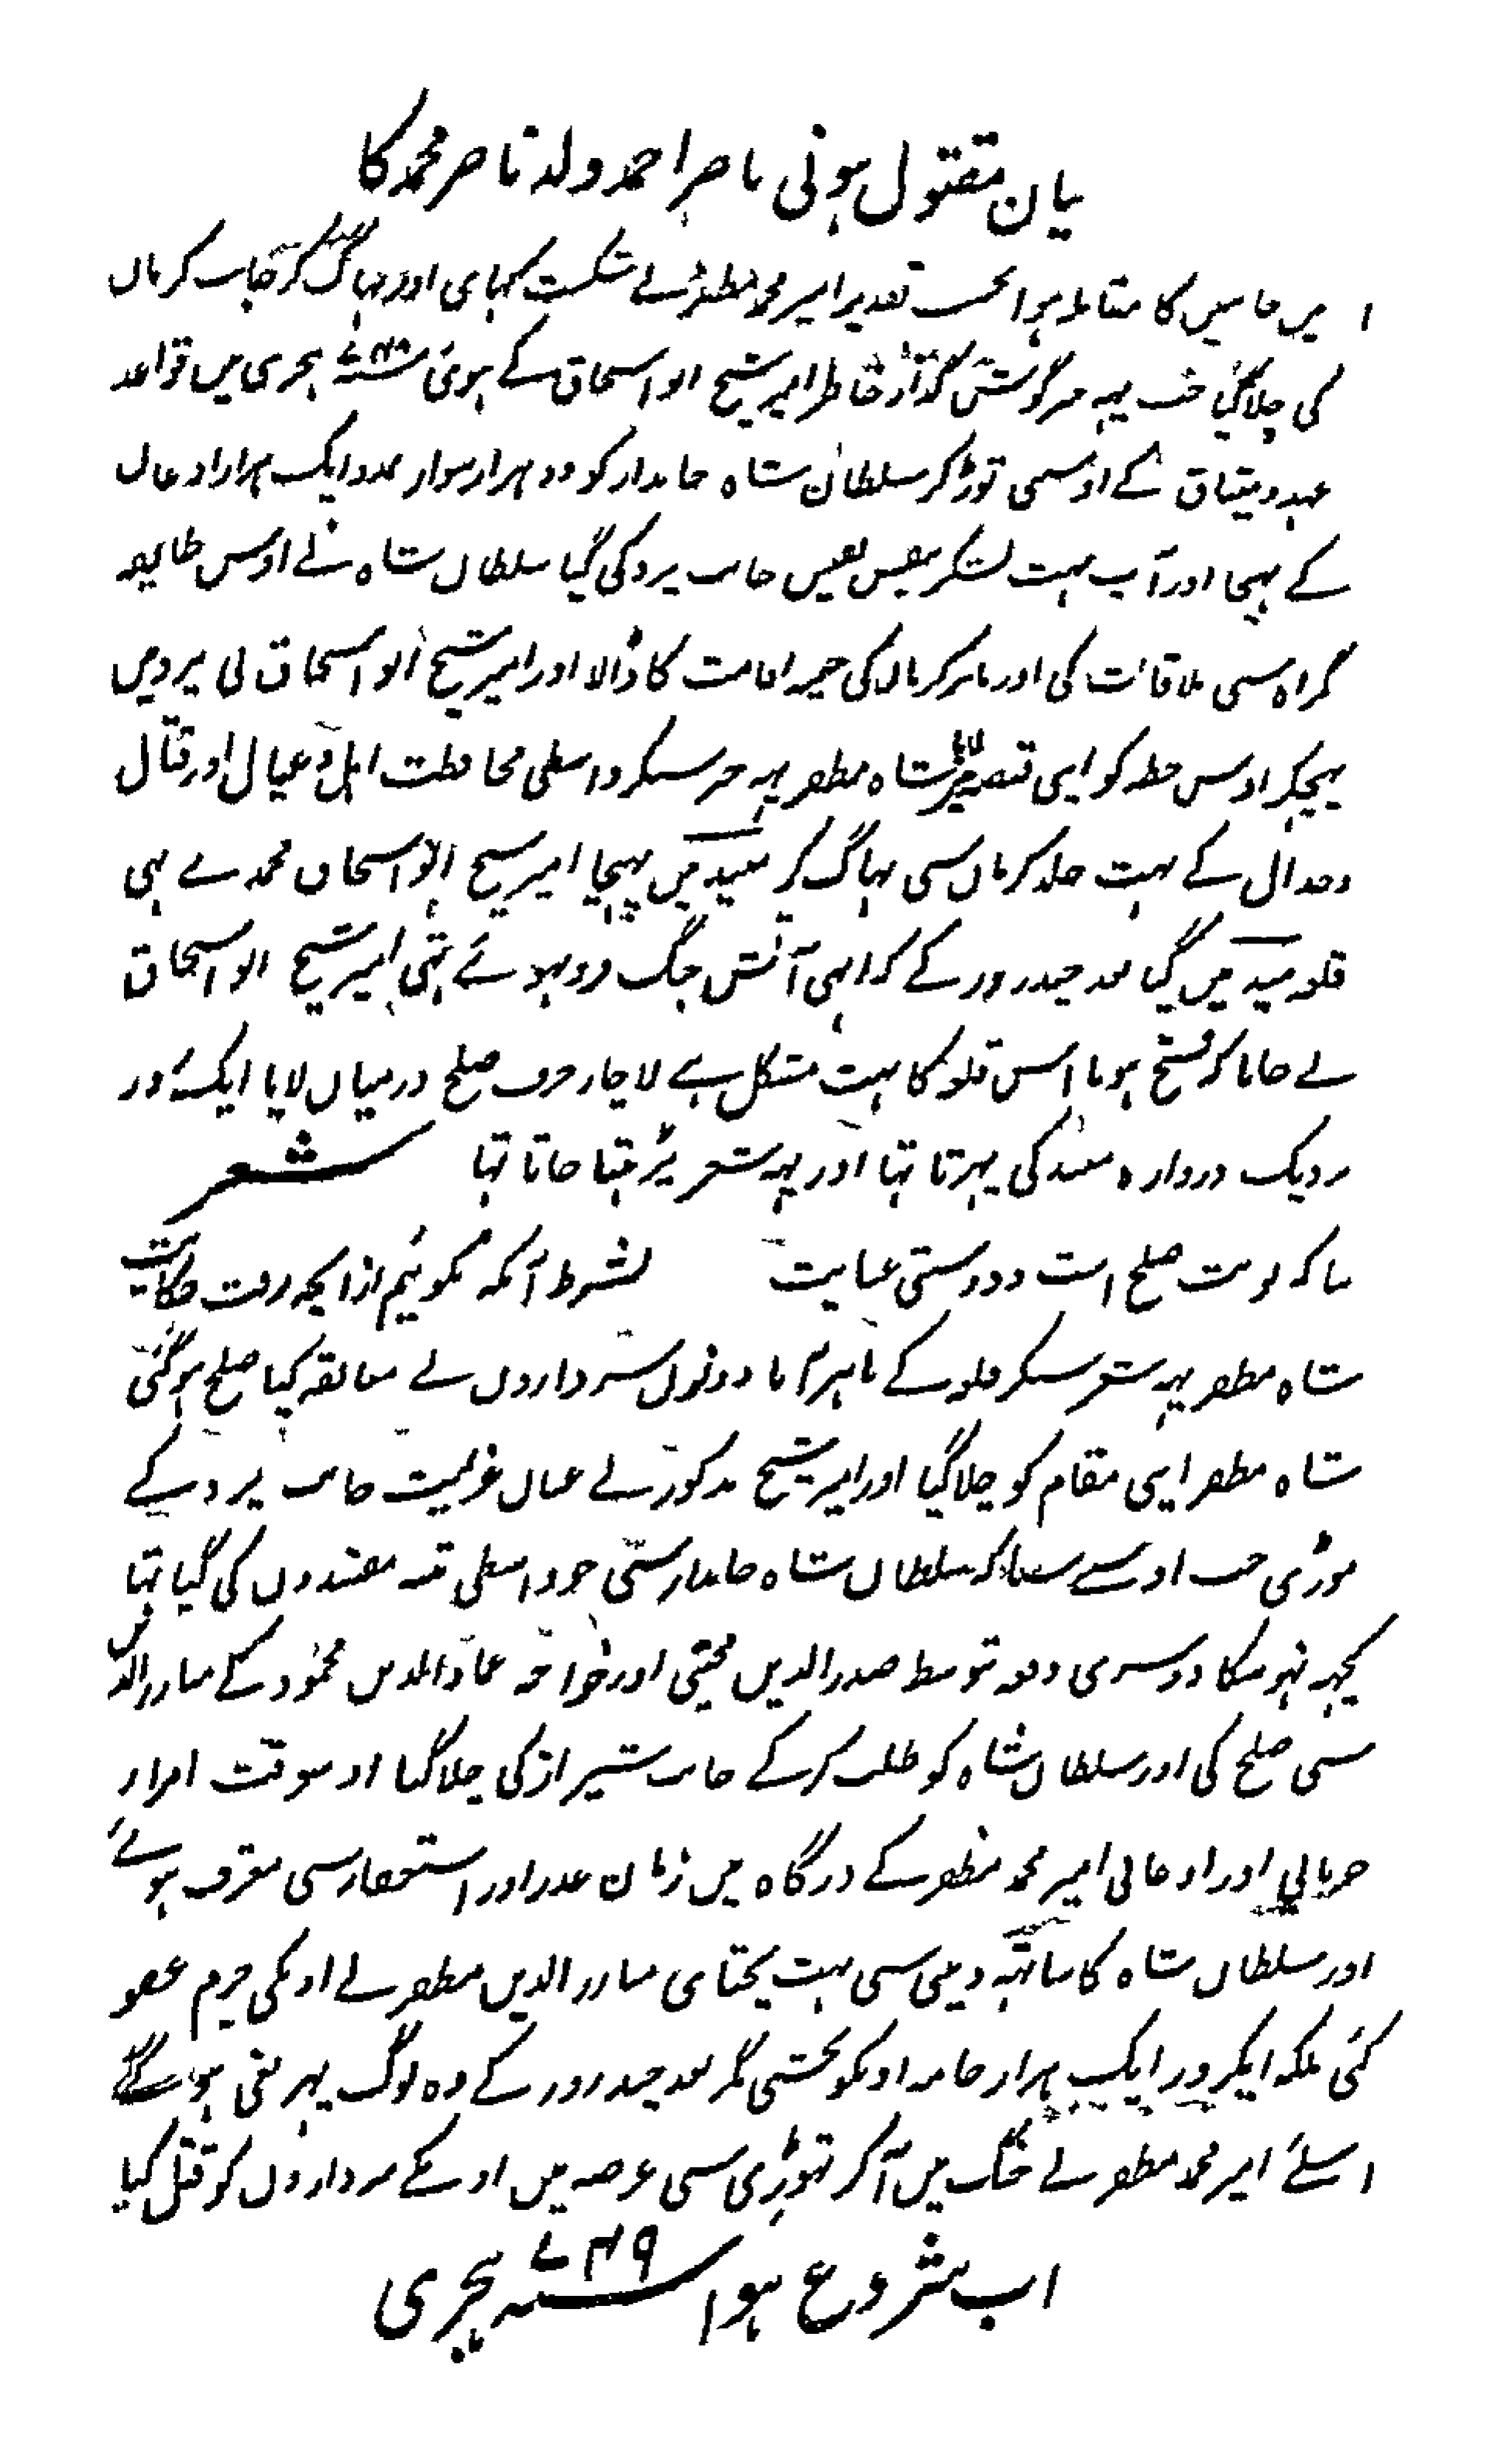 بیان مقتول ہونی ناصر احمد ولد ناصر محمد کا
میں جانبیں کا مقابلہ ہوا بحسب تقدیر امیر محمد مظفر نے شکست کہای اور بہاگ کر جانب کرمان
کی چلا گیا جب یہہ سرگوشت گذار خاطر امیر شیخ ابو اسحاق کے ہوئی ہجری میں قواعد
عہد و میثاق کے اوسمی توڑ کر سلطان شاہ جاندار کو دو ہزار سوار مدد ایک ہزار اوغال
کے بہیجا اور آپ بہت لشکر بنفس نفیس جانب یزد کی گیا سلطان شاہ نے اوس طایفہ
گراہ سی ملاقات کی اور باہر کرمان کی خیمہ اقامت کا ڈالا اور امیر شیخ ابو اسحاق نی یزد میں
پہنچکر اوس خطہ کو اپنی قبضہ میں لایا شاہ مظفر یہہ خبر سنکر واسطی محافظت اہل و عیال اور قتال
و جدال کے بہت جلد کرمان سی بہاگ کر میبد میں پہنچا امیر شیخ ابو اسحاق محمد سے ہی
قلعہ میبد میں گیا بعد چند روز کے کہ ایسی آتش جنگ روہوئے تہی امیر شیخ ابو اسحاق
نے جانا کہ فتح ہونا اس قلعہ کا بہت مشکل ہے لاچار حرف صلح درمیان لایا ایک روز
نزدیک دروازہ میبد کی پہرتا تہا اور یہہ شعر پڑہتا جاتا تہا شعر
بیا کہ نوبت صلح است و دوستی عنایت بشرط آنکہ نگوئیم از انچہ رفت حکایت
شاہ مظفر یہہ شعر سنکر قلعہ کے باہر آیا دونوں سرداروں نے معانقہ کیا صلح ہوگئی
شاہ مظفر اپنی مقام کو چلا گیا اور امیر شیخ مذکور نے عنان عزیمت جانب یزد کے
موڑی جب اوسے سنا کہ سلطان شاہ جاندار سی جو واسطی فتنہ مفسدوں کی گیا تہا
کچہہ نہو سکا دوسری دفعہ توسط صدر الدین مجتبی اور خواجہ عماد الدین محمود کے مبارز الدین
سی صلح کی اور سلطان شاہ کو طلب کر کے جانب شیراز کی چلا گیا اوسوقت امراء
جرمائی اور اوغانی امیر محمد مظفر کے درگاہ میں زبان عذر اور استغفار سی معترف ہوئے
اور سلطان شاہ کا ساتہہ دینی سی بہت پچتای مبارز الدین مظفر نے اونکی جرم عفو
کئی بلکہ ایکروز ایک ہزار جامہ اونکو بخشی مگر بعد چند روز کے وہ لوگ پہر یغی ہوگئے
اسلئے امیر محمد مظفر نے جنگ میں آکر تہوڑی سی عرصہ میں اونکے سرداروں کو قتل کیا
اب شروع ہوا ۷۴۹ سنہ ہجری